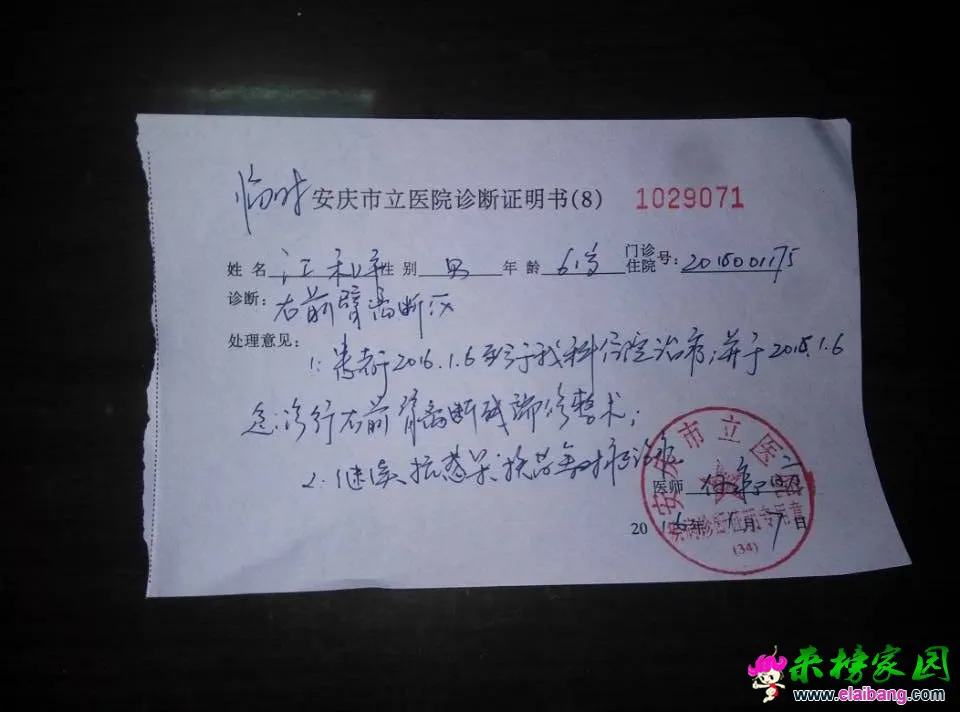 临时 安庆市立医院诊断证明书(8) 1029071
姓名 江 性别 男 年龄 61岁 门诊住院号:
诊断: 右前臂离断伤
处理意见:
1. 患者于2016.1.6 于我科住院治疗,并于 .1.6
急诊行右前臂离断残端修整术;
2. 继续抗感染、换药等对症治疗
医师
2016年1月7日
安庆市立医院
疾病诊断证明专用章
(34)
来榜家园
www.elaibang.com